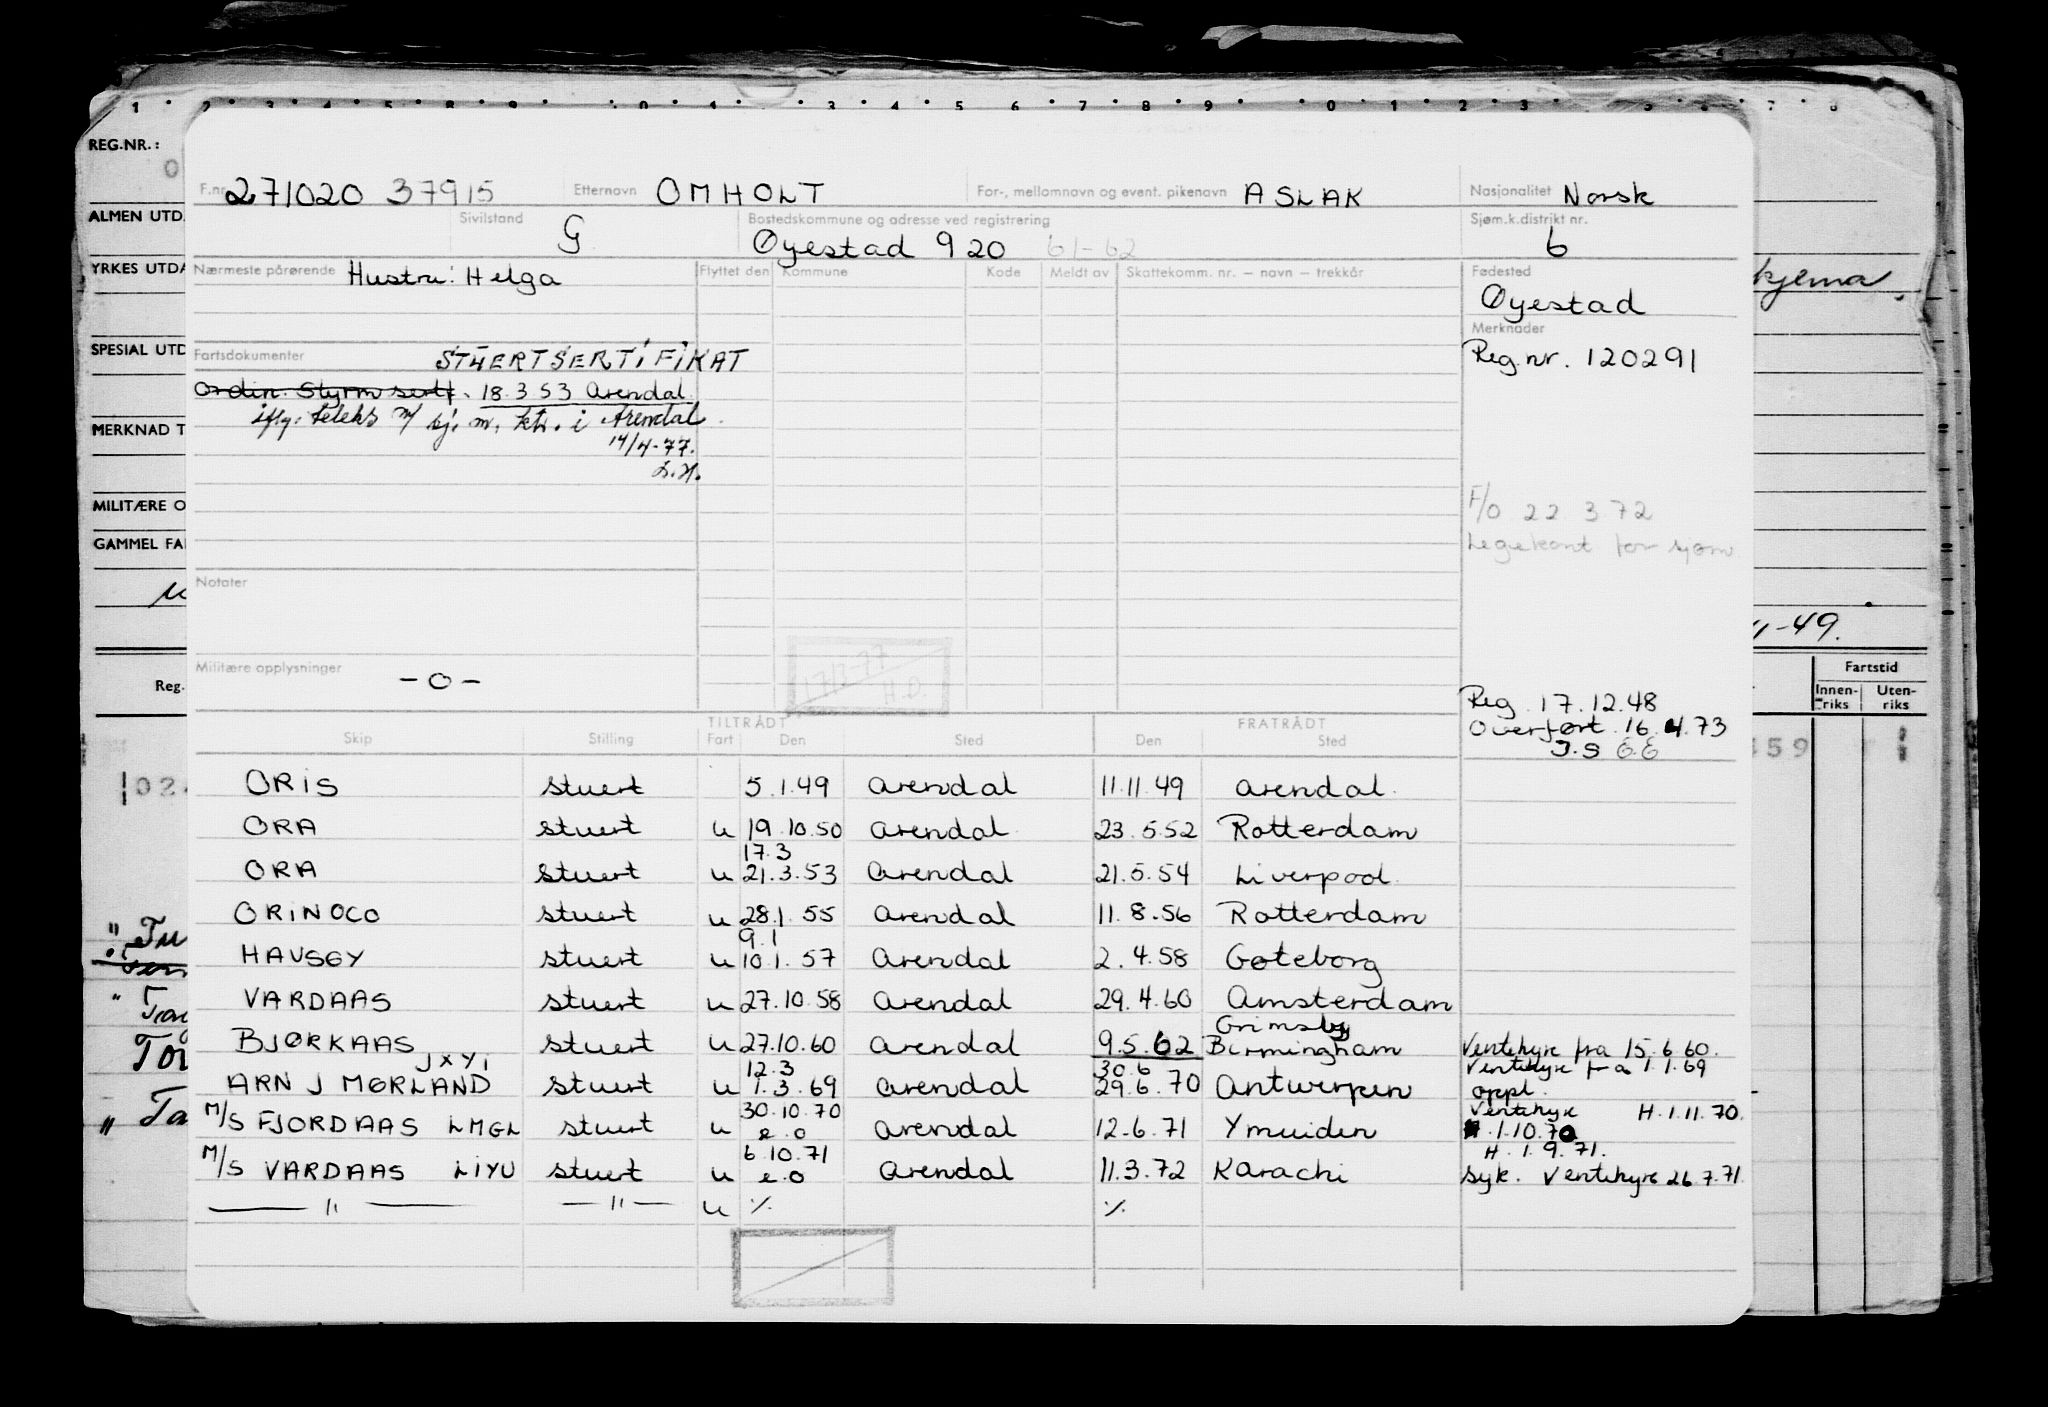 REG.NR.:
F.nr. 271020 37915 Etternavn OMHOLT For-, mellomnavn og event. pikenavn ASLAK Nasjonalitet Norsk
ALMEN UTD
Sivilstand G Bostedskommune og adresse ved registrering Øyestad 920 61-62 Sjøm.k.distrikt nr. 6
YRKES UTDA
Nærmeste pårørende Hustru: Helga Flyttet den Kommune Kode Meldt av Skattekomm. nr. – navn – trekkår Fødested
Øyestad
kjema.
Merknader
SPESIAL UTD
Fartsdokumenter STUERTSERTIFIKAT Reg.nr. 120291
Ordin. Styrm sertf. 18.3.53 Arendal
iflg. teleks m/ sj. m. ktr. i Arendal
14/4-77.
MERKNAD T
MILITÆRE O
F/O 22.3.72
GAMMEL FA
Legekont for sjøm
Notater
-49.
Militære opplysninger -0-
17/3-77
H.D.
Reg.
Reg. 17.12.48
Overført 16.4.73
Fartstid
Innen-riks Uten-riks
TILTRÅDT FRATRÅDT
Skip Stilling Fart Den Sted Den Sted
ORIS stuert 5.1.49 Arendal 11.11.49 Arendal
ORA stuert u 19.10.50 Arendal 23.5.52 Rotterdam
17.3
ORA stuert u 21.3.53 Arendal 21.5.54 Liverpool
ORINOCO stuert u 28.1.55 Arendal 11.8.56 Rotterdam
9.1
HAVSØY stuert u 10.1.57 Arendal 2.4.58 Gøteborg
VARDAAS stuert u 27.10.58 Arendal 29.4.60 Amsterdam
Grimsby
BJØRKAAS stuert u 27.10.60 Arendal 9.5.62 Birmingham Ventehyre fra 15.6.60.
JXYI 12.3 30.6 Ventehyre fra 1.1.69
ARN J MØRLAND stuert u 1.3.69 Arendal 29.6.70 Antwerpen oppl.
30.10.70 Ventehyre H.1.11.70.
M/S FJORDAAS LMGL stuert u e.o Arendal 12.6.71 Ymuiden 1.10.70
6.10.71 H. 1.9.71.
M/S VARDAAS LIYU stuert u e.o Arendal 11.3.72 Karachi syk. Ventehyre 26.7.71.
— " — — " — u ٪ ٪